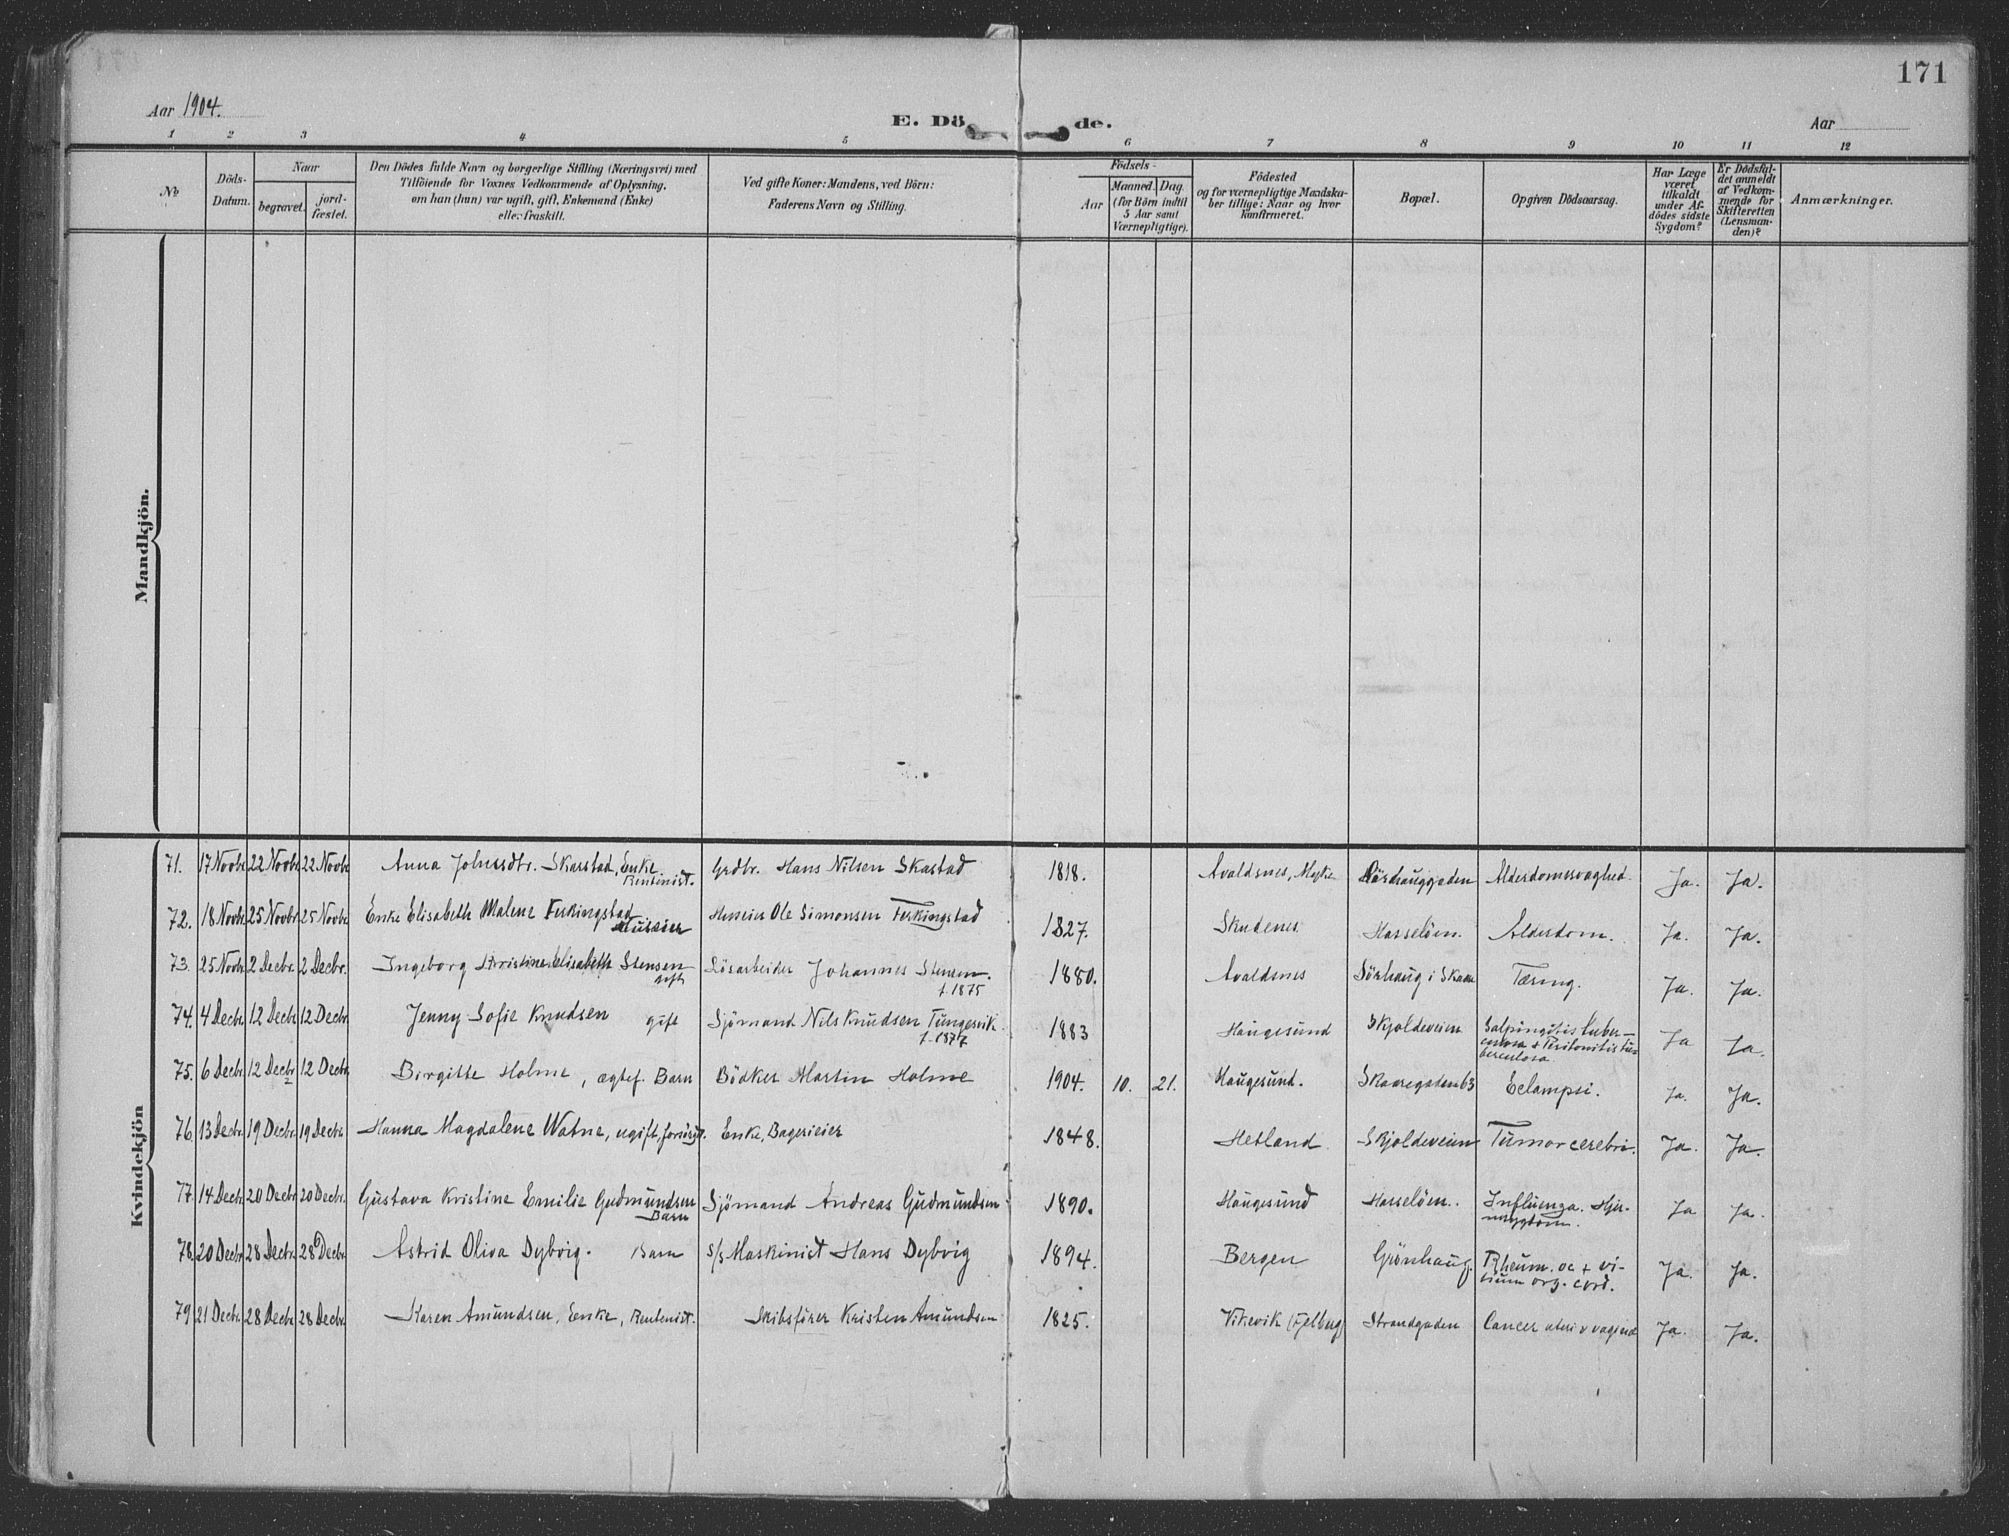 171
Aar 1904.
E. Dö de.
Aar
1 2 3 4 5 6 7 8 9 10 11 12
No
Döds-Datum.
Naar
begravet.
jord-fæstet.
Den Dödes fulde Navn og borgerlige Stilling (Næringsvei) med
Tilföiende for Voxnes Vedkommende af Oplysning,
om han (hun) var ugift, gift, Enkemand (Enke)
eller fraskilt.
Ved gifte Koner: Mandens, ved Börn:
Faderens Navn og Stilling.
Födsels-
Aar
Maaned. Dag.
(for Börn indtil
5 Aar samt
Værnepligtige).
Födested
og for værnepligtige Mandska-
ber tillige: Naar og hvor
konfirmeret.
Bopæl.
Opgiven Dödsaarsag.
Har Læge
været
tilkaldt
under Af-
dödes sidste
Sygdom?
Er Dödsfal-
det anmeldt
af Vedkom-
mende for
Skifteretten
(Lensman-
den)?
Anmærkninger.
Mandkjön.
Kvindekjön
71. 17 Novbr. 22 Novbr. 22 Novbr. Anna Johnsdtr. Skarstad, Enke Rentenist. Grdbr. Hans Nilsen Skastad 1818. Avaldsnes, Alderdomssvaghed. Ja. Ja.
72. 18 Novbr. 25 Novbr. 25 Novbr. Enke Elisabeth Malene Ferkingstad Huseier Huseier Ole Simonsen Ferkingstad 1827. Skudenes Hasselöen. Alderdom. Ja. Ja.
73. 25 Novbr. 2 Decbr. 2 Decbr. Ingeborg Kristine Elisabeth Stensen gift Lösarbeider Johannes Stensen. f. 1875 1880. Avaldsnes Sörhaug i Skaare Tæring. Ja. Ja.
74. 4 Decbr. 12 Decbr. 12 Decbr. Jenny Sofie Knudsen gift Sjömand Nils Knudsen Tungesvik. f. 1877 1883 Haugesund Skjoldeveien Salpingitis tuber-
culosa & Peritonitis tu-
berculosa Ja Ja.
75. 6 Decbr. 12 Decbr. 12 Decbr. Birgitte Holme, ægtef. Barn Bödker Martin Holme 1904. 10. 21. Haugesund. Skaaregaden 63 Eclampsi. Ja. Ja.
76. 13 Decbr. 19 Decbr. 19 Decbr. Hanna Magdalene Watne, ugift, forsörget. Enke, Bagerieier 1848. Hetland Skjoldeveien Tumor cerebri. Ja. Ja.
77. 14 Decbr. 20 Decbr. 20 Decbr. Gustava Kristine Emilie Gudmundsen Barn Sjömand Andreas Gudmundsen 1890. Haugesund Hasselöen. Influenza. Hjer-
nesygdom. Ja Ja.
78. 20 Decbr. 28 Decbr. 28 Decbr. Astrid Oliva Dybvig. Barn s/s Maskinist Hans Dybvig 1894. Bergen Grönhaug. Rheum. ac + vi-
tium org. cord. Ja. Ja.
79. 21 Decbr. 28 Decbr. 28 Decbr. Karen Amundsen, Enke, Rentenist. Skibsförer Kristen Amundsen 1825. Vikevik (Fjelberg) Strandgaden Cancer uteri & vaginæ Ja. Ja.